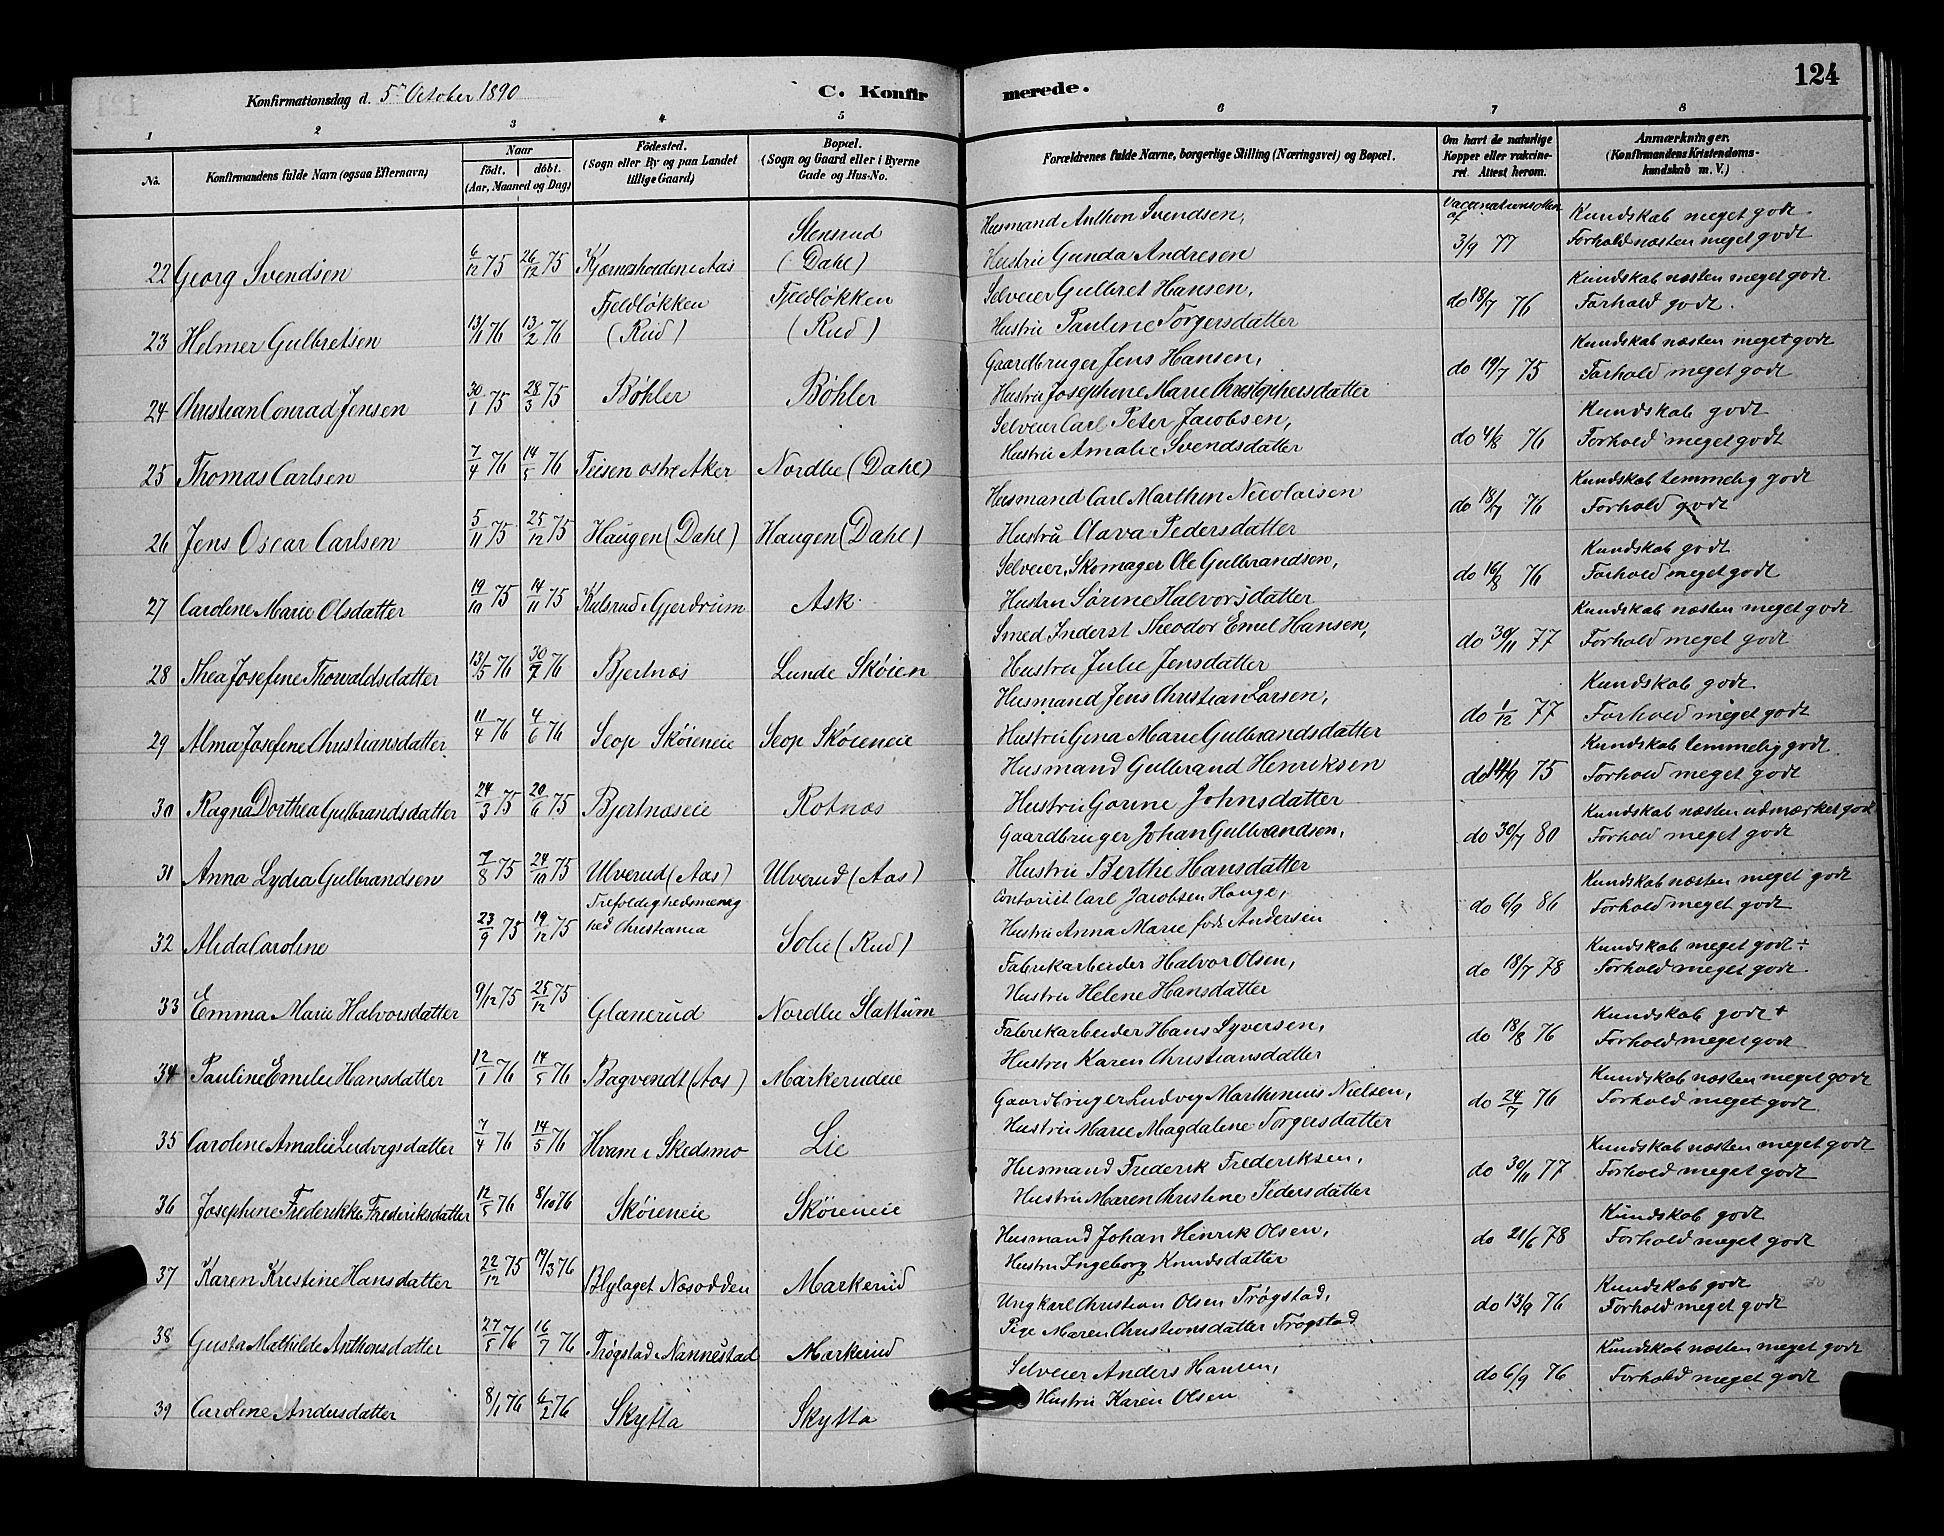 Konfirmationsdag d. 5 October 1890
C. Konfirmerede.
124
1 2 3 4 5 6 7 8
No.
Konfirmandens fulde Navn (ogsaa Efternavn)
Naar
födt. döbt.
(Aar, Maaned og Dag)
Födested.
(Sogn eller By og paa Landet
tillige Gaard.)
Bopæl.
(Sogn og Gaard eller i Byerne
Gade og Hus-No.
Forældrenes fulde Navne, borgerlige Stilling (Næringsvei) og Bopæl.
Om havt de naturlige
Kopper eller vakcine-
ret. Attest herom.
Anmærkninger.
(Konfirmandens Kristendoms-
kundskab m. V.)
22 Georg Svendsen 6/12 75 26/12 75 Aas Stensrud (Dahl)
Husmand Anthon Svendsen,
Hustru Gunda Andresen
af 3/9 77
Kundskab meget godt
Forhold næsten meget godt
23 Helmer Gulbretsen 13/1 76 13/2 76 Fjeldløkken (Rud) Fjeldløkken (Rud)
Selveier Gulbret Hansen,
Hustru Pauline Torgersdatter
do 18/7 76
Kundskab næsten meget godt.
Forhold godt.
24 Christian Conrad Jensen 30/1 75 28/3 75 Bøhler Bøhler
Gaardbruger Jens Hansen,
Hustru Josephine Marie Christophersdatter
do 19/7 75
Kundskab næsten meget godt
Forhold meget godt
25 Thomas Carlsen 7/4 76 14/5 76 Teisen østre Aker Nordlie (Dahl)
Selveier Carl Peter Jacobsen,
Hustru Amalie Svendsdatter
do 4/8 76
Kundskab godt
Forhold meget godt
26 Jens Oscar Carlsen 5/11 75 25/12 75 Haugen (Dahl) Haugen (Dahl)
Husmand Carl Marthin Nicolaisen
Hustru Olava Pedersdatter
do 18/7 76
Kundskab temmelig godt
Forhold godt
27 Caroline Marie Olsdatter 19/10 75 14/11 75 Kulsrud i Gjerdrum Ask
Selveier, Skomager Ole Gulbrandsen,
Hustru Sørine Halvorsdatter
do 16/8 76
Kundskab godt
Forhold meget godt
28 Thea Josefine Thowaldsdatter 13/5 76 30/7 76 Bjertnæs Lunde Skøien
Smed Inderst Theodor Emil Hansen,
Hustru Julie Jensdatter
do 30/11 77
Kundskab næsten meget godt
Forhold meget godt
29 Alma Josefine Christiansdatter 11/4 76 4/6 76 Seop Skøieneie Seop Skøieneie
Husmand Jens Christian Larsen,
Hustru Gina Marie Gulbrandsdatter
do 1/12 77
Kundskab godt
Forhold meget godt
30 Ragna Dorthea Gulbrandsdatter 24/3 75 20/6 75 Bjertnæseie Rotnæs
Husmand Gulbrand Henriksen
Hustru Gorine Johnsdatter
do 14/9 75
Kundskab temmelig godt.
Forhold meget godt
31 Anna Lydia Gulbrandsen 7/8 75 24/10 75 Ulverud (Aas) Ulverud (Aas)
Gaardbruger Johan Gulbrandsen,
Hustru Berthe Hansdatter
do 30/7 80
Kundskab næsten udmærket godt
Forhold meget godt
32 Alida Caroline 23/9 75 19/12 75 Trefoldighedsmenig hed Christiania Solie (Rud)
Contorist Carl Jacobsen Hauge,
Hustru Anna Marie født Andersen
do 6/9 86
Kundskab næsten meget godt
Forhold meget godt
33 Emma Marie Halvorsdatter 9/12 75 25/12 75 Glanerud Nordlie Slattum
Fabrikarbeider Halvor Olsen,
Hustru Helene Hansdatter
do 18/7 78
Kundskab meget godt ÷
Forhold meget godt
34 Pauline Emilie Hansdatter 12/1 76 14/5 76 Bagvendt (Aas) Markerudeie
Fabrikarbeider Hans Syversen,
Hustru Karen Christiansdatter
do 18/8 76
Kundskab godt +
Forhold meget godt
35 Caroline Amalie Ludvigsdatter 7/4 76 14/5 76 Hvam i Skedsmo Lie
Gaardbruger Ludvig Marthinius Nielsen,
Hustru Marie Magdalene Torgersdatter
do 24/7 76
Kundskab næsten meget godt
Forhold meget godt
36 Josephine Frederikke Frederiksdatter 12/5 76 8/10 76 Skøieneie Skøieneie
Husmand Frederik Frederiksen,
Hustru Maren Christine Pedersdatter
do 30/11 77
Kundskab næsten meget godt
Forhold meget godt
37 Karen Kristine Hansdatter 22/12 75 19/3 76 Blylaget Næsodden Markerud
Husmand Johan Hinrik Olsen,
Hustru Ingeborg Knudsdatter
do 21/6 78
Kundskab godt
Forhold meget godt
38 Gusta Mathilde Anthonsdatter 27/5 76 16/7 76 Trøgstad i Nannestad Markerud
Ungkarl Christian Olsen Trøgstad,
Pige Maren Christionsdatter Trøgstad
do 13/9 76
Kundskab godt
Forhold meget godt
39 Caroline Andersdatter 8/1 76 6/2 76 Skytta Skytta
Selveier Anders Hansen,
Hustru Karen Olsen
do 6/9 76
Kundskab næsten meget godt
Forhold meget godt